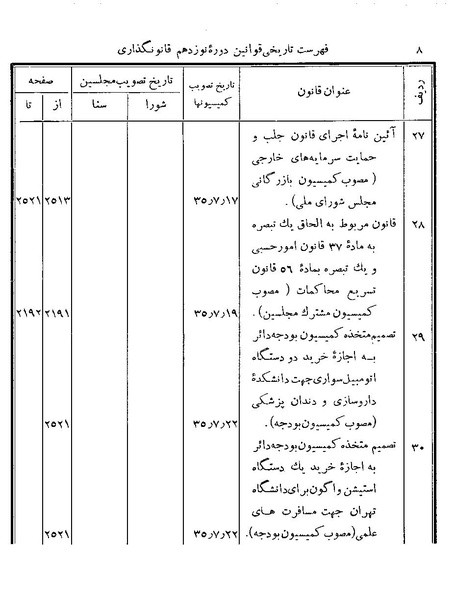 ۸ فهرست تاریخی قوانین دورهٔ نوزدهم قانونگذاری
ردیف عنوان قانون تاریخ تصویب کمیسیونها تاریخ تصویب مجلسین صفحه
شورا سنا از تا
۲۷ آئین نامهٔ اجرای قانون جلب و
حمایت سرمایه‌های خارجی
(مصوب کمیسیون بازرگانی
مجلس شورای ملی). ۳۵٫۷٫۱۷ ۲۵۱۳ ۲۵۲۱
۲۸ قانون مربوط به الحاق یك تبصره
به مادهٔ ۳۷ قانون امورحسبی
و یك تبصره بمادهٔ ۵۶ قانون
تسریع محاکمات (مصوب
کمیسیون مشترك مجلسین). ۳۵٫۷٫۱۹ ۲۱۹۱ ۲۱۹۲
۲۹ تصمیم متخذه کمیسیون بودجه دائر
به اجازهٔ خرید دو دستگاه
اتومبیل سواری جهت دانشکدهٔ
داروسازی و دندان پزشکی
(مصوب کمیسیون بودجه). ۳۵٫۷٫۲۲ ۲۵۲۱
۳۰ تصمیم متخذه کمیسیون بودجه دائر
به اجازهٔ خرید یك دستگاه
استیشن واگون برای دانشگاه
تهران جهت مسافرت های
علمی (مصوب کمیسیون بودجه). ۳۵٫۷٫۲۲ ۲۵۲۱